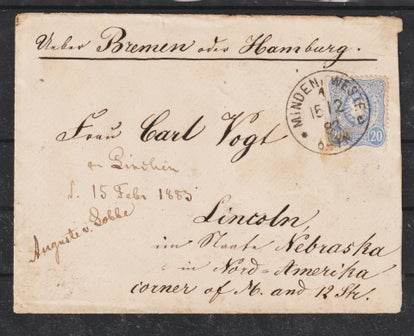 Ueber Bremen oder Hamburg.
MINDEN WESTF
15 12
20
Frau Carl Vogt
d. 15 Febr 1883
Auguste v.
Lincoln,
im Staate Nebraska
in Nord-Amerika
corner of M. and 12 Str.